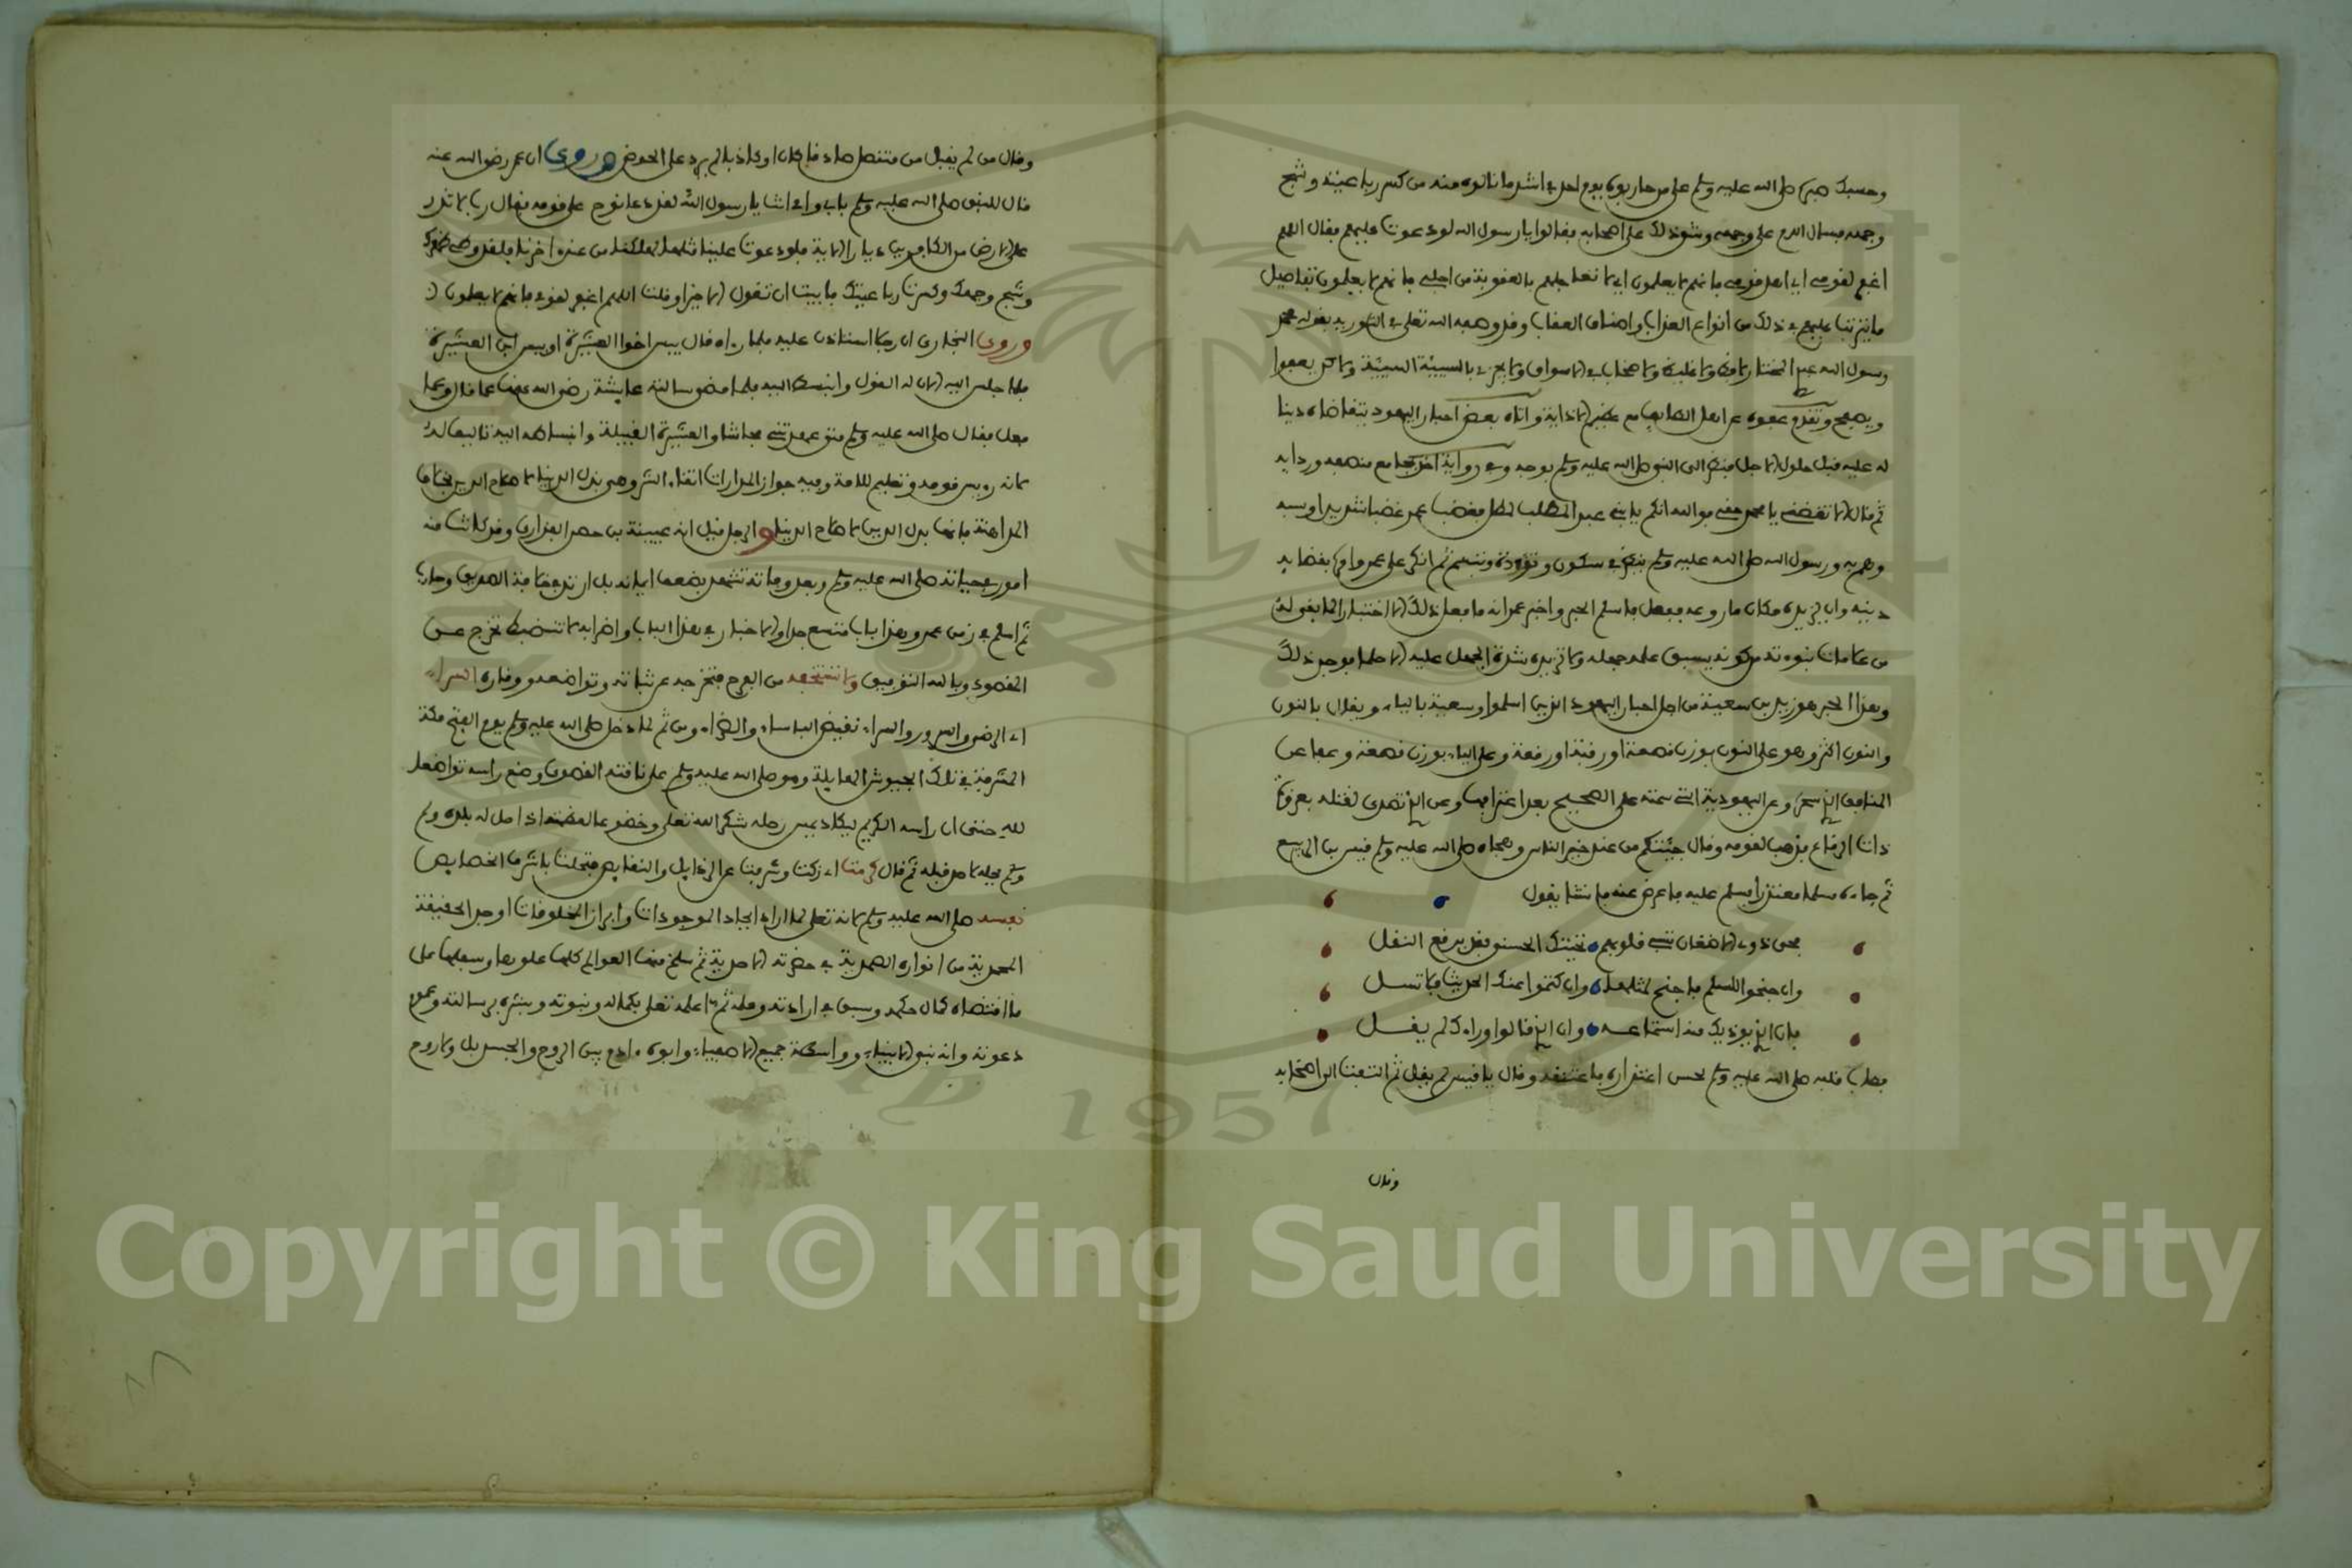 وحسبك صبره صلى الله عليه وسلم على من حاربوه يوم احد في اشد ما نالوه منه من كسر رباعيته وشج
وجهه فسال الدم على وجهه وشق ذلك على اصحابه فقالوا يا رسول الله لو دعوت عليهم فقال اللهم
اغفر لقومي اي اهل قومي فانهم لا يعلمون اي لا تعاجلهم بالعقوبة من اجلي فانهم لا يعلمون تفاصيل
ما يترتب عليهم في ذلك من انواع العذاب واصناف العقاب وقد وصفه الله تعلى في التورية بقوله محمد
رسول الله عبدي المختار لا فظ ولا غليظ ولا صخاب في الاسواق ولا يجزي بالسيئة السيئة ولكن يعفوا
ويصفح وتقدم عفوه عن اهل الطايف مع عظيم الاذاية واتاه بعض احبار اليهود يتقاضاه دينا
له عليه قبل حلول الاجل فنظر الى النبي صلى الله عليه وسلم بوجه وفي رواية اخذ بمجامع قميصه وردايه
ثم قال الا تقضني يا محمد حقي فوالله انكم يا بني عبد المطلب لمطل فغضب عمر غضبا شديدا وسبه
وهم به ورسول الله صلى الله عليه وسلم ينظر في سكون وتؤدة وتبسم ثم انكر على عمر وامره بقضايه
دينه وان يزيده مكان ما روعه ففعل فاسلم الحبر واخبر عمر انه ما فعل ذلك الا اختبارا لما بقي له
من علامات نبوءته من كونه يسبق حلمه جهله ولا تزيده شدة الجهل عليه الا حلما فوجد ذلك
وهذا الحبر هو زيد بن سعنة من اجل احبار اليهود الذين اسلموا وسعية بالياء ويقال بالنون
والنون اكثر وهو على النون بوزن قصعة او رقبة او رقعة وعلى الياء بوزن قصعة وعفا عن
المنافق الذي سحره وعن اليهودية التي سمته على الصحيح بعد اعترافها وعن الذي تصدى لقتله بغزوة
ذات الرقاع فذهب لقومه وقال جئتكم من عند خير الناس وهجاه صلى الله عليه وسلم قيس بن الربيع
ثم جاءه مسلما معتذرا فسلم عليه فاعرض عنه فانشا يقول
محي ذوي الاضغان تسبي قلوبهم تحيتك الحسنى فقد يرفع النغل
وان جنحوا للسلم فاجنح لمثلها وان كتموا عنك الحديث فلا تسل
فان الذي يوذيك منه استماعه وان الذي قالوا وراءك لم يقل
فطاب قلبه صلى الله عليه وسلم لحسن اعتذاره فاعتنقه وقال يا قيس لم يقل ثم التفت الى اصحابه
وقال
وقال من لم يقبل من متنصل صادقا كان او كاذبا لم يرد على الحوض وروي ان عمر رضي الله عنه
قال للنبي صلى الله عليه وسلم بابي وامي انت يا رسول الله لقد دعا نوح على قومه فقال رب لا تذر
على الارض من الكافرين ديارا الاية فلو دعوت علينا مثلها لهلكنا من عند اخرنا فلقد وطئ ظهرك
وشج وجهك وكسرت رباعيتك فابيت ان تقول الا خيرا وقلت اللهم اغفر لقومي فانهم لا يعلمون
وروى البخاري ان رجلا استاذن عليه فلما راه قال بيس اخو العشيرة او بيس ابن العشيرة
فلما جلس اليه الان له القول وانبسط اليه فلما مضى سالته عايشة رضي الله عنها عما قال وعما
فعل فقال صلى الله عليه وسلم متى عهدتني فحاشا والعشيرة القبيلة وانبساطه اليه تاليفا له
لانه رييس قومه وتعليم للامة وفيه جواز المدارات اتقاء الشر وهي بذل الدنيا لاصلاح الدين بخلاف
المداهنة فانها بذل الدين لاصلاح الدنيا والرجل قيل انه عيينة بن حصن الفزاري وقد كانت منه
امور في حياته صلى الله عليه وسلم وبعد وفاته تشهد بضعف ايمانه بل ارتد مع طليحة وحارب
ثم اسلم في زمن عمر وهذا باب متسع جدا والاخبار في هذا الباب واضرابه لا تنضبط تخرج عن
المقصود وبالله التوفيق ولا تستخفه من الفرح فتخرجه عن ثباته وتواضعه ووقاره السراء
اي الرضى والسرور والسراء نقيض الباساء والضراء ومن ثم لما دخل صلى الله عليه وسلم يوم الفتح مكة
المشرفة في تلك الجيوش الهايلة وهو صلى الله عليه وسلم على ناقته القصوى وضع راسه تواضعا
لله حتى ان راسه الكريم ليكاد يمس رحله شكرا لله تعلى وخضوعا لعظمته اذ احل له بلده ولم
يحله لاحد قبله ثم قال كرمت اي زكت وشرفت عن الرذايل والنقايص فتحلت باشرف الخصايص
نفسه صلى الله عليه وسلم لانه تعلى لما اراد ايجاد الموجودات وابراز المخلوقات اوجد الحقيقة
المحمدية من انواره الصمدية في حضرته الاحدية ثم سلخ منها العوالم كلها علوها وسفلها على
ما اقتضاه كمال حكمه وسبق في ارادته وعلمه ثم اعلمه تعلى بكماله ونبوته وبشره برسالته وعموم
دعوته وانه نبي الانبياء وواسطة جميع الاصفياء وابوه ءادم بين الروح والجسد بل ولا روح
Copyright © King Saud University
1957